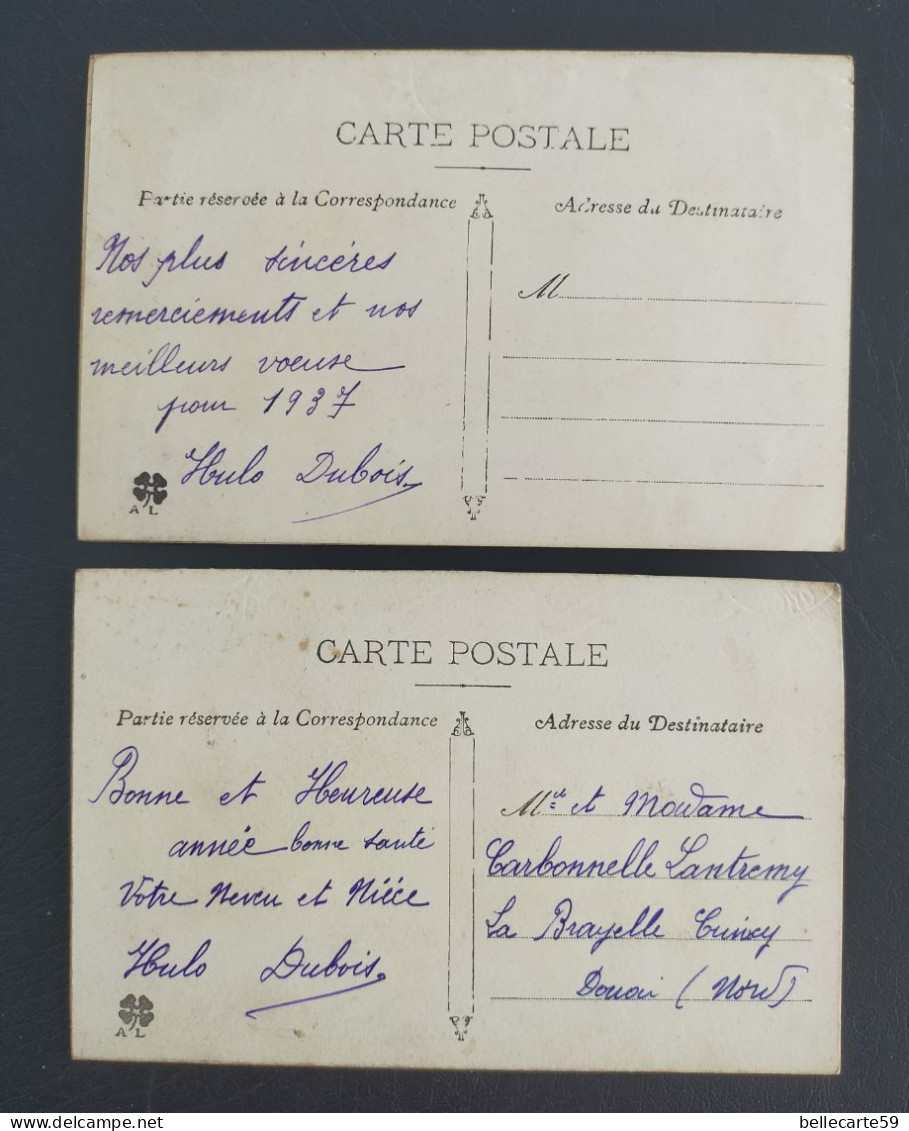 CARTE POSTALE
Partie réservée à la Correspondance
Adresse du Destinataire
Nos plus sincéres
remerciements et nos
meilleurs voeuse
pour 1937
Hulo Dubois
A L
M
CARTE POSTALE
Partie réservée à la Correspondance
Adresse du Destinataire
Bonne et Heureuse
année bonne santé
Votre Neveu et Niéce
Hulo Dubois
A L
M et Madame
Carbonnelle Lantremy
La Brayelle Cuincy
Douai (Nord)
bellecarte59